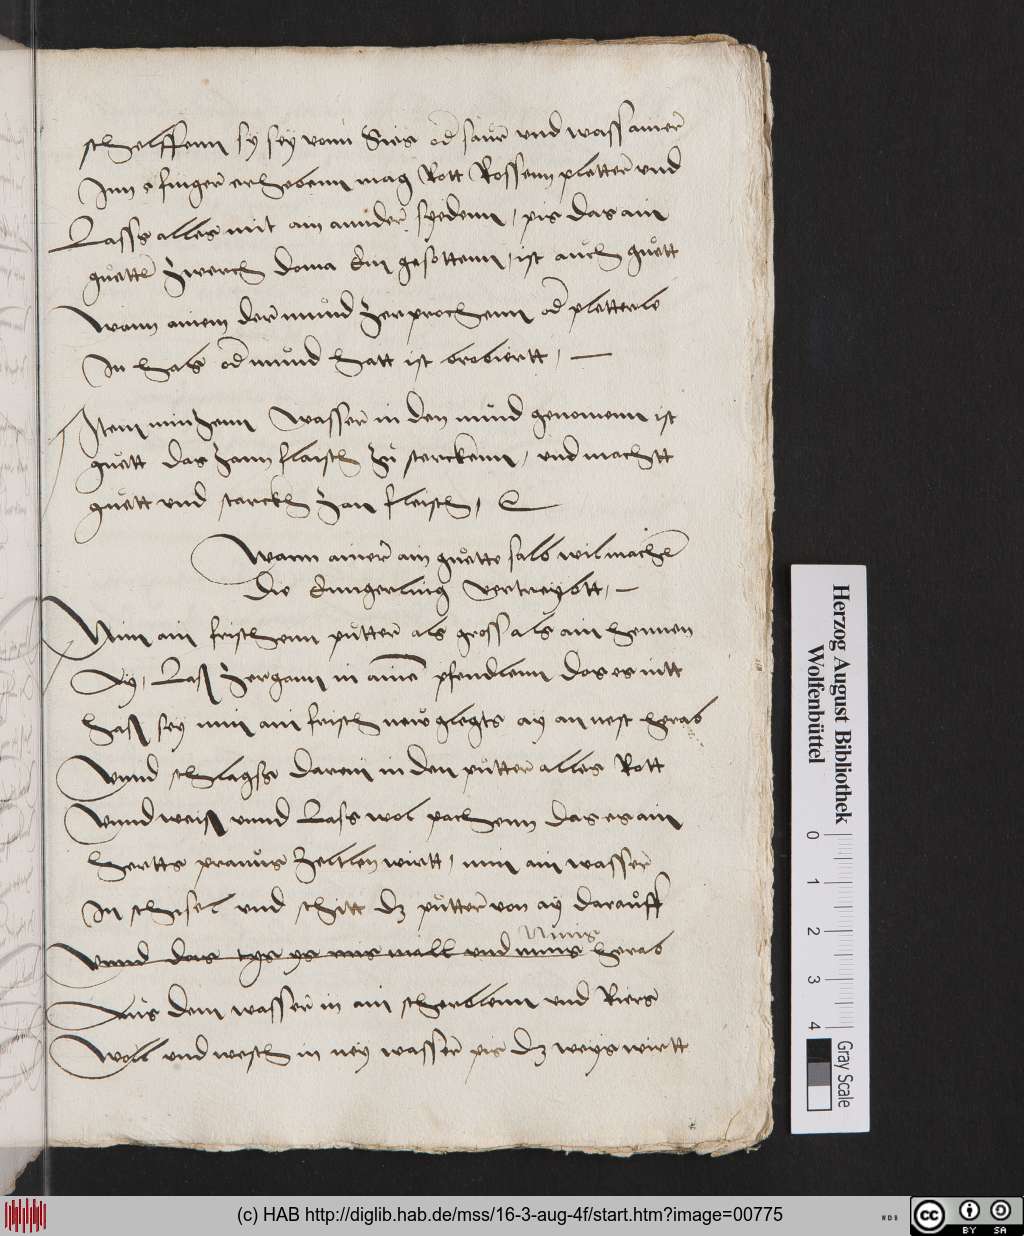 schelffenn sy sey vonn Sies od saur und was ainer
Inn 3 finger erhebenn mag Rott Rossenn pletter und
Lass alles mit ain annder syedenn, pis das ain
guette zwerch doma ein gesottenn, ist auch guett
Wann ainem der mund zerprochenn od pletterle
In hals od mund hatt ist brobiertt, —
Item minzenn Wasser in den mund genomenn ist
guett das zann flaisch zu sterckenn, und machtt
guett und starckh zan fleisch,
Wann ainer ain guette salb wil machen
die Enngerling vertreybtt, —
Nim ain frischenn putter als gross als ain hennen
Ay, Lass zergann in ainem pfendlenn das es nitt
haiss sey nim ain frisch new glegts ay an nest herab
Vnnd schlagss darein in den putter alles Rott
Vnnd weiss vnnd Lass wol pachenn das es ain
hertts prauns zeltlen wirtt, nim ain wasser
In schisel und schitt dz putter von ay darauff
Vnnd das und nims herab
Nims
Aus dem wasser in ain scherblenn und Riers
Woll und wesch in ney wasser pis dz weys wirtt
Herzog August Bibliothek
Wolfenbüttel
0 1 2 3 4
Gray Scale
(c) HAB http://diglib.hab.de/mss/16-3-aug-4f/start.htm?image=00775
WDB
cc
BY SA